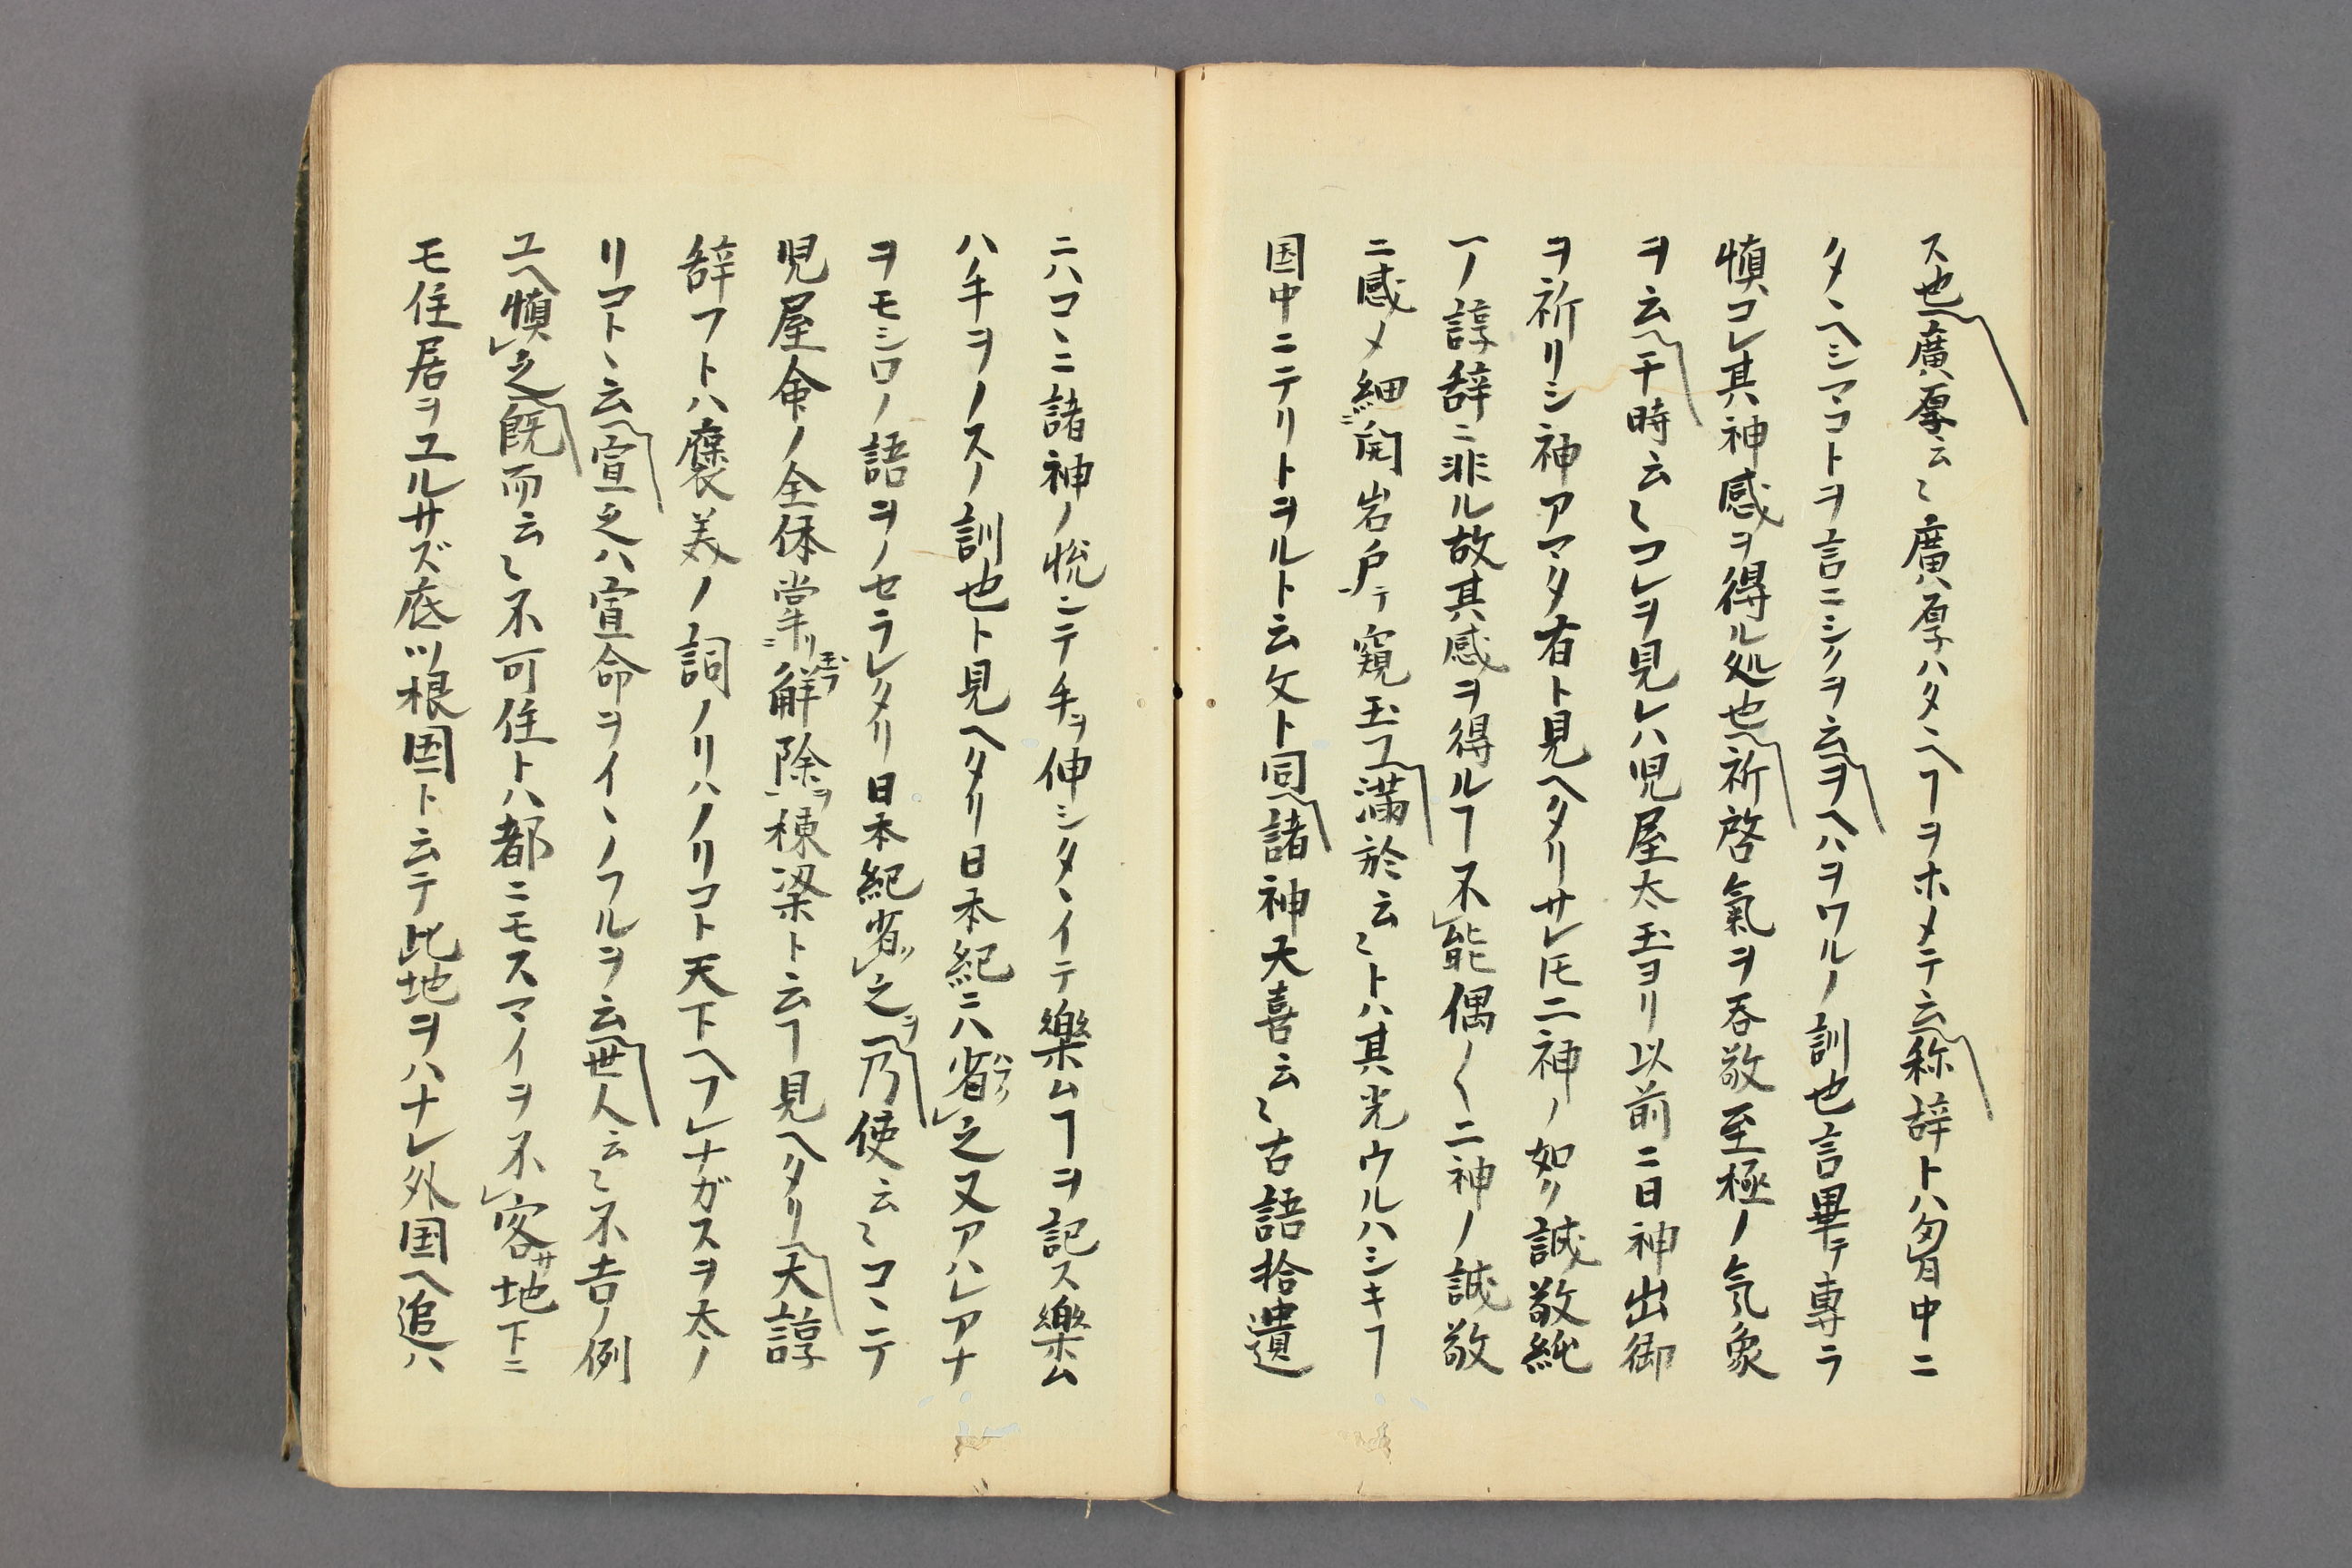 ス也廣厚云〻廣厚ハタヽヘヿヲホメテ云称辞トハ匈中ニ
タヽヘシマコトヲ言ニシヲ云ヲヘハヲワルノ訓也言畢テ専ラ
慎コレ其神感ヲ得ル処也祈啓氣ヲ呑敬至極ノ气象
ヲ云干時云〻コレヲ見レハ児屋太玉ヨリ以前ニ日神出御
ヲ祈リシ神アマタ有ト見ヘタリサレ𪜈二神ノ如ク誠敬純
一ノ諄辞ニ非ル故其感ヲ得ルヿ不能偶〱二神ノ誠敬
ニ感メ細ニ開岩戸テ窺玉フ満於云〻トハ其光ウルハシキヿ
国中ニテリトヲルト云文ト同諸神大喜云〻古語拾遺
ニハコヽニ諸神ノ悦ンテ手ヲ伸シタヽイテ樂ムヿヲ記ス樂ム
ハ手ヲノスノ訓也ト見ヘタリ日本紀ニハ省之又アハレアナ
ヲモシロノ語ヲノセラレタリ日本紀省之ヲ乃使云〻コヽニテ
児屋命ノ全体掌リ玉フ解除ヲ棟梁ト云ヿ見ヘタリ天諄
辞フトハ襃美ノ詞ノリハノリコト天下ヘフレナガスヲ太ノ
リコトヽ云宣之ハ宣命ヲイヽノフルヲ云世人云〻不吉ノ例
ユヘ慎之既而云〻不可住トハ都ニモスマイヲ不客サ地下ニ
モ住居ヲユルサズ底ツ根国ト云テ此地ヲハナレ外国ヘ追ハ